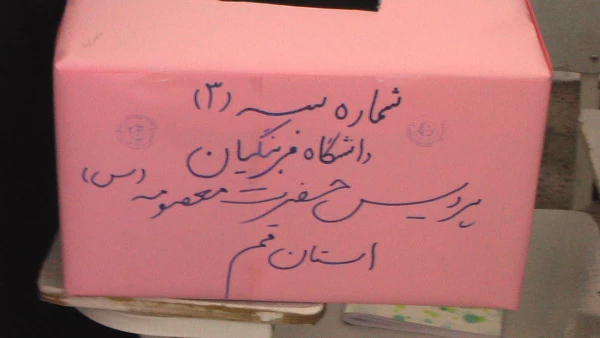 شماره سه (۳)
دانشگاه فرهنگیان
پردیس حضرت معصومه (س)
استان قم